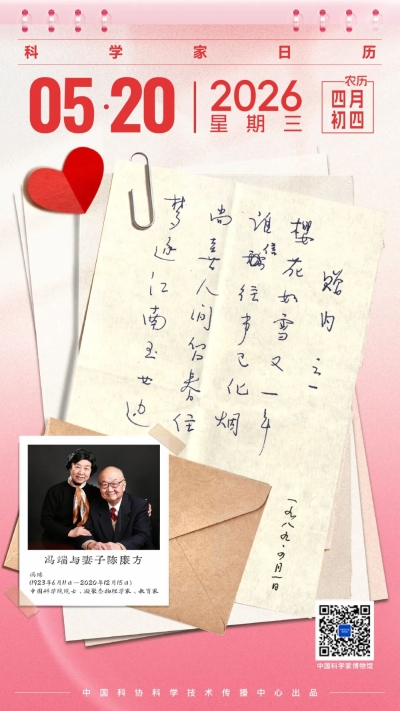 科学家日历
05·20
2026
星期三
农历
四月
初四
赠内 之一
樱花如雪又一年
谁信往事已化烟
尚真人间留春住
梦逐江南玉女边
一九八九.四月一日
冯端与妻子陈廉方
冯端
(1923年6月11日—2020年12月15日)
中国科学院院士、凝聚态物理学家、教育家
中国科学家博物馆
中国科协科学技术传播中心出品